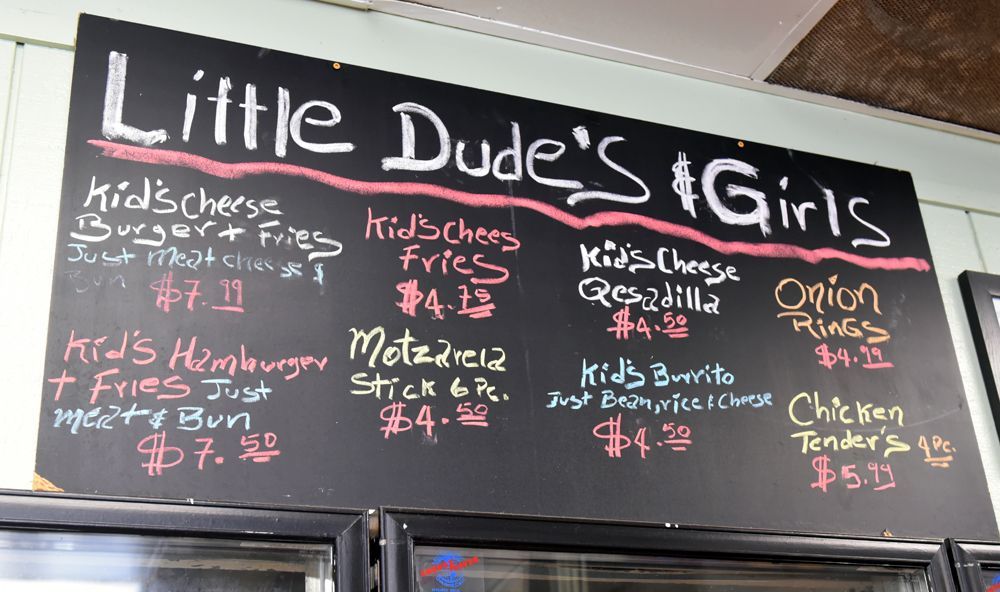 Little Dude's & Girls
Kid's Cheese
Burger + Fries
Just meat cheese &
Bun $7.99
Kid's Hamburger
+ Fries Just
meat & Bun
$7.50
Kid's Chees
Fries
$4.75
Motzarela
Stick 6 Pc.
$4.50
Kid's Cheese
Qesadilla
$4.50
Kid's Burrito
Just Bean, rice & Cheese
$4.50
Onion
Rings
$4.99
Chicken
Tender's 4 Pc.
$5.99